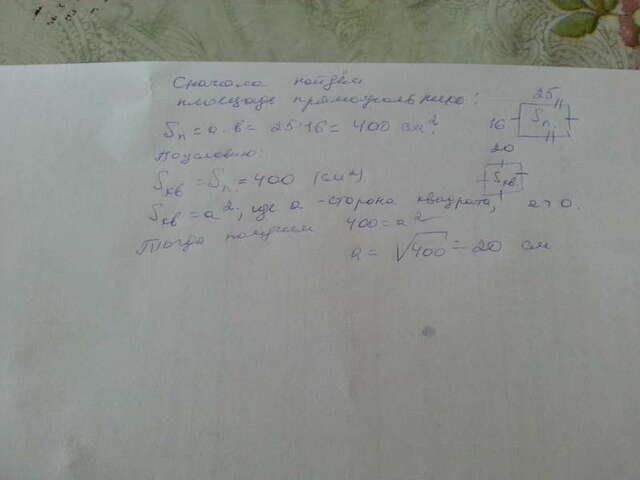 Сначала найдём
площадь прямоугольника:
Sп = a · в = 25·16 = 400 см².
По условию:
Sкв = Sп = 400 (см²)
Sкв = a², где a - сторона квадрата, a > 0.
Тогда получим 400 = a²
a = √400 = 20 см
25
16 Sп
20
Sкв